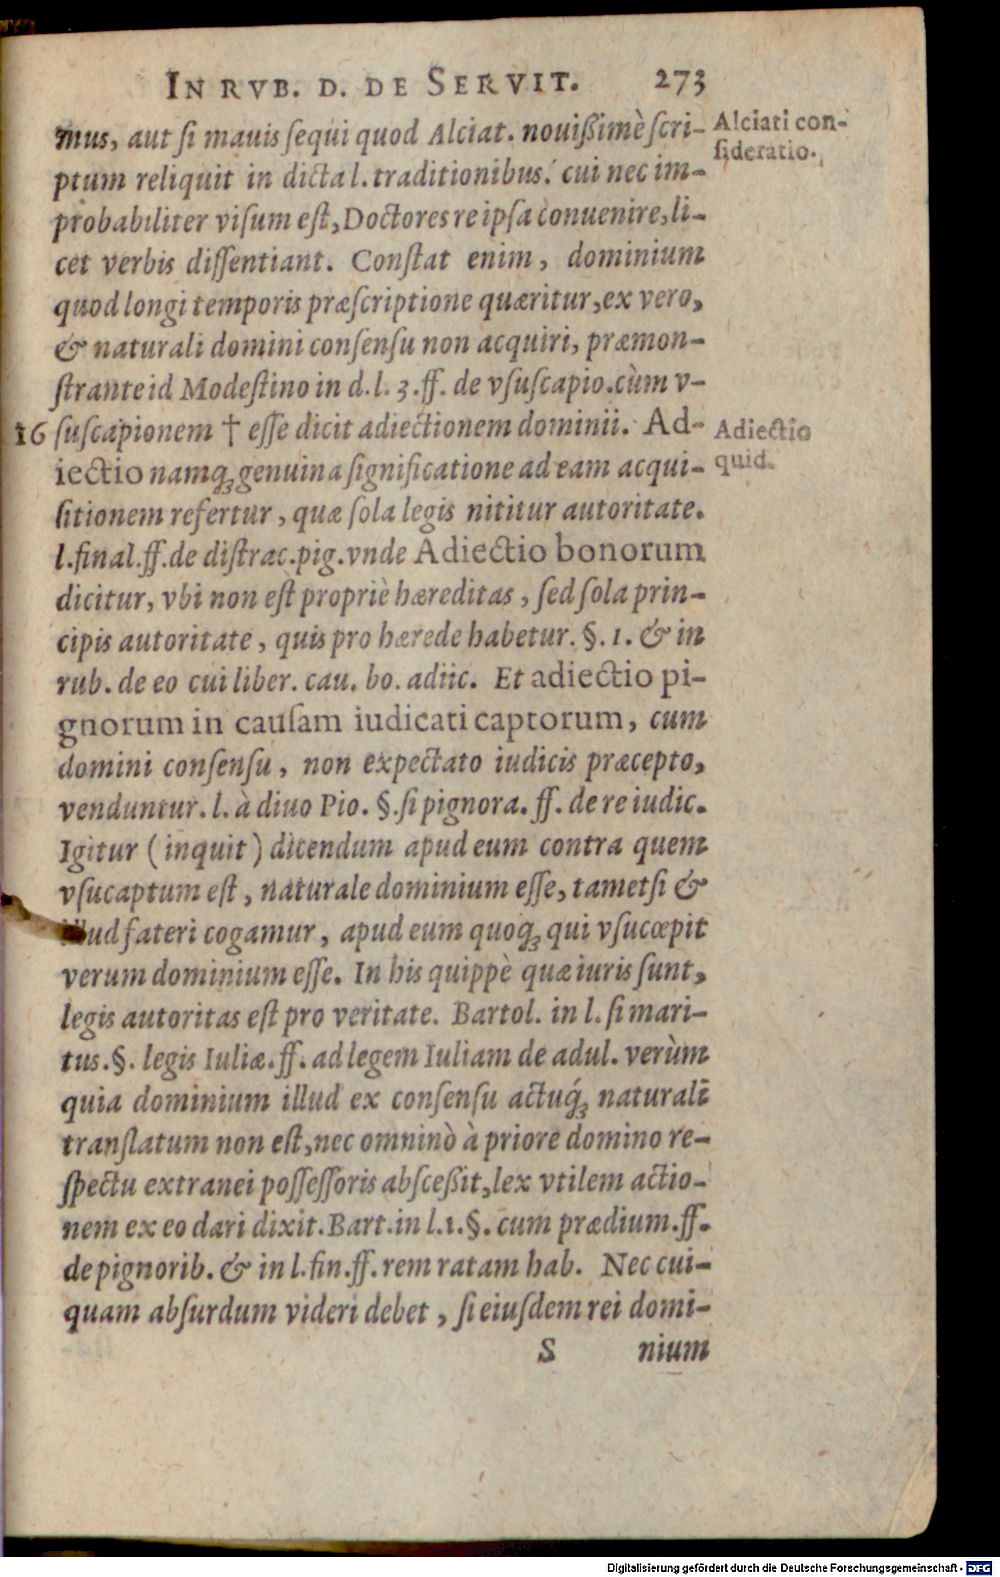 IN RVB. D. DE SERVIT. 273
mus, aut ſi mauis ſequi quod Alciat. nouißimè ſcri-
Alciati con-
ſideratio.
ptum reliquit in dicta l. traditionibus. cui nec im-
probabiliter viſum eſt, Doctores re ipſa conuenire, li-
cet verbis diſſentiant. Conſtat enim, dominium
quod longi temporis præſcriptione quæritur, ex vero,
& naturali domini conſenſu non acquiri, præmon-
ſtrante id Modeſtino in d. l. 3. ff. de vſuſcapio. cùm v-
16 ſuſcapionem † eſſe dicit adiectionem dominii. Ad-
Adiectio
quid.
iectio namq́ꝫ genuina ſignificatione ad eam acqui-
ſitionem refertur, quæ ſola legis nititur autoritate.
l. final. ff. de diſtrac. pig. vnde Adiectio bonorum
dicitur, vbi non eſt propriè hæreditas, ſed ſola prin-
cipis autoritate, quis pro hærede habetur. §. 1. & in
rub. de eo cui liber. cau. bo. adiic. Et adiectio pi-
gnorum in cauſam iudicati captorum, cum
domini conſenſu, non expectato iudicis præcepto,
venduntur. l. à diuo Pio. §. ſi pignora. ff. de re iudic.
Igitur (inquit) dicendum apud eum contra quem
vſucaptum eſt, naturale dominium eſſe, tametſi &
illud fateri cogamur, apud eum quoqꝫ qui vſucœpit
verum dominium eſſe. In his quippè quæ iuris ſunt,
legis autoritas eſt pro veritate. Bartol. in l. ſi mari-
tus. §. legis Iuliæ. ff. ad legem Iuliam de adul. verùm
quia dominium illud ex conſenſu actuq́ꝫ naturali
translatum non eſt, nec omninò à priore domino re-
ſpectu extranei poſſeſſoris abſceßit, lex vtilem actio-
nem ex eo dari dixit. Bart. in l. 1. §. cum prædium. ff.
de pignorib. & in l. fin. ff. rem ratam hab. Nec cui-
quam abſurdum videri debet, ſi eiuſdem rei domi-
S nium
Digitalisierung gefördert durch die Deutsche Forschungsgemeinschaft - DFG